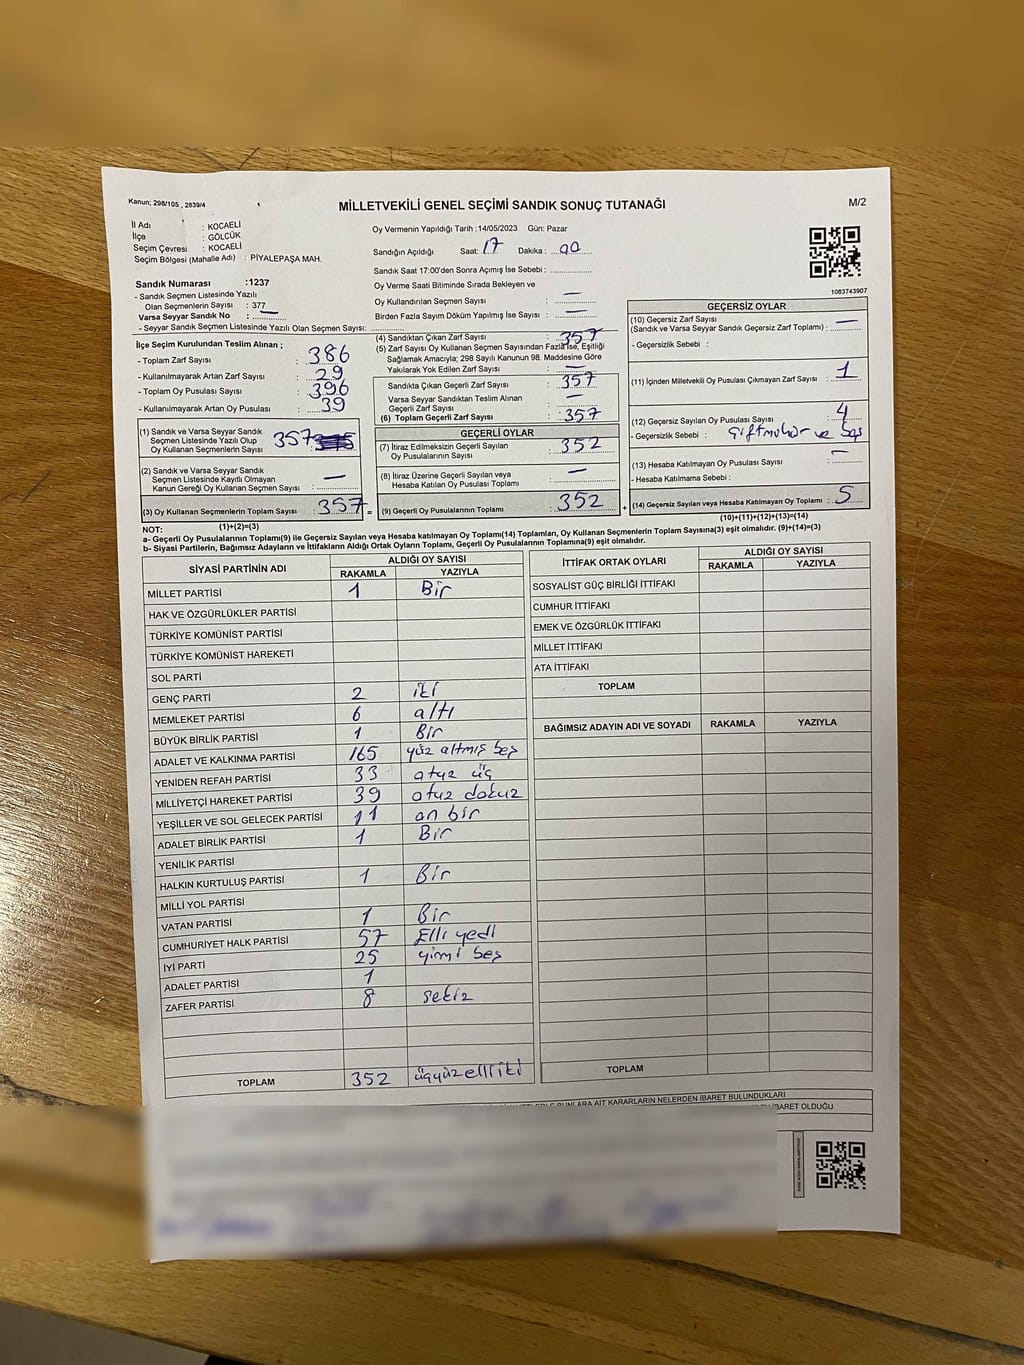 Kanun; 298/105 , 2839/4
MİLLETVEKİLİ GENEL SEÇİMİ SANDIK SONUÇ TUTANAĞI
M/2
İl Adı : KOCAELİ
İlçe : GÖLCÜK
Seçim Çevresi : KOCAELİ
Seçim Bölgesi (Mahalle Adı) : PİYALEPAŞA MAH.
Sandık Numarası :1237
- Sandık Seçmen Listesinde Yazılı
Olan Seçmenlerin Sayısı : 377
Varsa Seyyar Sandık No : —
- Seyyar Sandık Seçmen Listesinde Yazılı Olan Seçmen Sayısı:
İlçe Seçim Kurulundan Teslim Alınan ;
- Toplam Zarf Sayısı : 386
- Kullanılmayarak Artan Zarf Sayısı : 29
- Toplam Oy Pusulası Sayısı : 396
- Kullanılmayarak Artan Oy Pusulası : 39
(1) Sandık ve Varsa Seyyar Sandık
Seçmen Listesinde Yazılı Olup
Oy Kullanan Seçmenlerin Sayısı : 357
(2) Sandık ve Varsa Seyyar Sandık
Seçmen Listesinde Kayıtlı Olmayan
Kanun Gereği Oy Kullanan Seçmen Sayısı : —
(3) Oy Kullanan Seçmenlerin Toplam Sayısı : 357 =
(1)+(2)=(3)
Oy Vermenin Yapıldığı Tarih :14/05/2023 Gün: Pazar
Sandığın Açıldığı Saat: 17 Dakika :
Sandık Saat 17:00'den Sonra Açımış İse Sebebi :
Oy Verme Saati Bitiminde Sırada Bekleyen ve
Oy Kullandırılan Seçmen Sayısı : —
Birden Fazla Sayım Döküm Yapılmış İse Sayısı : —
(4) Sandıktan Çıkan Zarf Sayısı : 357
(5) Zarf Sayısı Oy Kullanan Seçmen Sayısından Fazla İse, Eşitliği
Sağlamak Amacıyla; 298 Sayılı Kanunun 98. Maddesine Göre
Yakılarak Yok Edilen Zarf Sayısı : —
Sandıkta Çıkan Geçerli Zarf Sayısı : 357
Varsa Seyyar Sandıktan Teslim Alınan
Geçerli Zarf Sayısı : —
(6) Toplam Geçerli Zarf Sayısı : 357
GEÇERLİ OYLAR
(7) İtiraz Edilmeksizin Geçerli Sayılan
Oy Pusulalarının Sayısı : 352
(8) İtiraz Üzerine Geçerli Sayılan veya
Hesaba Katılan Oy Pusulası Toplamı : —
(9) Geçerli Oy Pusulalarının Toplamı : 352 +
1083743907
GEÇERSİZ OYLAR
(10) Geçersiz Zarf Sayısı
(Sandık ve Varsa Seyyar Sandık Geçersiz Zarf Toplamı) : —
- Geçersizlik Sebebi :
(11) İçinden Milletvekili Oy Pusulası Çıkmayan Zarf Sayısı : 1
(12) Geçersiz Sayılan Oy Pusulası Sayısı : 4
- Geçersizlik Sebebi : Çiftmühür ve boş
(13) Hesaba Katılmayan Oy Pusulası Sayısı : —
- Hesaba Katılmama Sebebi :
(14) Geçersiz Sayılan veya Hesaba Katılmayan Oy Toplamı : 5
(10)+(11)+(12)+(13)=(14)
NOT:
a- Geçerli Oy Pusulalarının Toplamı(9) ile Geçersiz Sayılan veya Hesaba katılmayan Oy Toplamı(14) Toplamları, Oy Kullanan Seçmenlerin Toplam Sayısına(3) eşit olmalıdır. (9)+(14)=(3)
b- Siyasi Partilerin, Bağımsız Adayların ve İttifakların Aldığı Ortak Oyların Toplamı, Geçerli Oy Pusulalarının Toplamına(9) eşit olmalıdır.
SİYASİ PARTİNİN ADI ALDIĞI OY SAYISI
RAKAMLA YAZIYLA
MİLLET PARTİSİ 1 Bir
HAK VE ÖZGÜRLÜKLER PARTİSİ
TÜRKİYE KOMÜNİST PARTİSİ
TÜRKİYE KOMÜNİST HAREKETİ
SOL PARTİ
GENÇ PARTİ 2 iki
MEMLEKET PARTİSİ 6 altı
BÜYÜK BİRLİK PARTİSİ 1 Bir
ADALET VE KALKINMA PARTİSİ 165 yüz altmış beş
YENİDEN REFAH PARTİSİ 33 otuz üç
MİLLİYETÇİ HAREKET PARTİSİ 39 otuz dokuz
YEŞİLLER VE SOL GELECEK PARTİSİ 11 on bir
ADALET BİRLİK PARTİSİ 1 Bir
YENİLİK PARTİSİ
HALKIN KURTULUŞ PARTİSİ 1 Bir
MİLLİ YOL PARTİSİ
VATAN PARTİSİ 1 Bir
CUMHURİYET HALK PARTİSİ 57 Elli yedi
İYİ PARTİ 25 yimi beş
ADALET PARTİSİ 1
ZAFER PARTİSİ 8 sekiz
TOPLAM 352 üçyüzelliiki
İTTİFAK ORTAK OYLARI ALDIĞI OY SAYISI
RAKAMLA YAZIYLA
SOSYALİST GÜÇ BİRLİĞİ İTTİFAKI
CUMHUR İTTİFAKI
EMEK VE ÖZGÜRLÜK İTTİFAKI
MİLLET İTTİFAKI
ATA İTTİFAKI
TOPLAM
BAĞIMSIZ ADAYIN ADI VE SOYADI RAKAMLA YAZIYLA
TOPLAM
BUNLARA AİT KARARLARIN NELERDEN İBARET BULUNDUKLARI
İBARET OLDUĞU